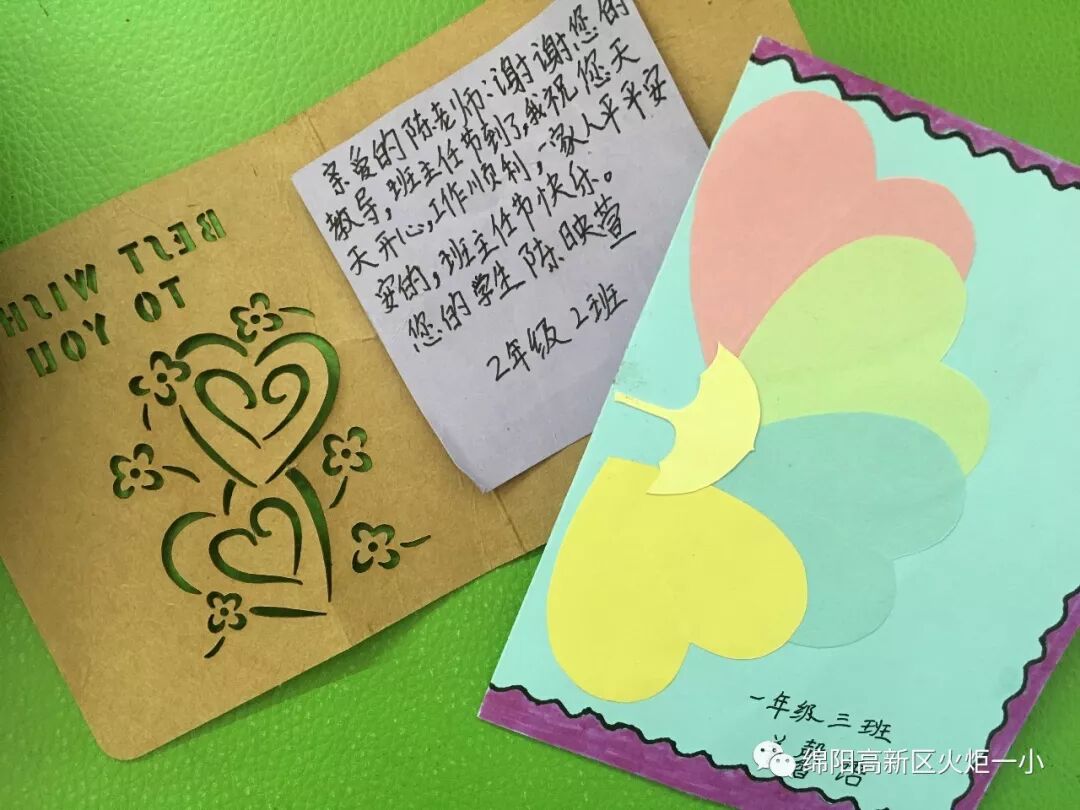 BEST WISH
TO YOU
亲爱的陈老师:谢谢您的
教导,班主任节到了,我祝您天
天开心,工作顺利,一家人平平安
安的,班主任节快乐。
您的学生 陈映萱
2年级2班
一年级三班
绵阳高新区火炬一小